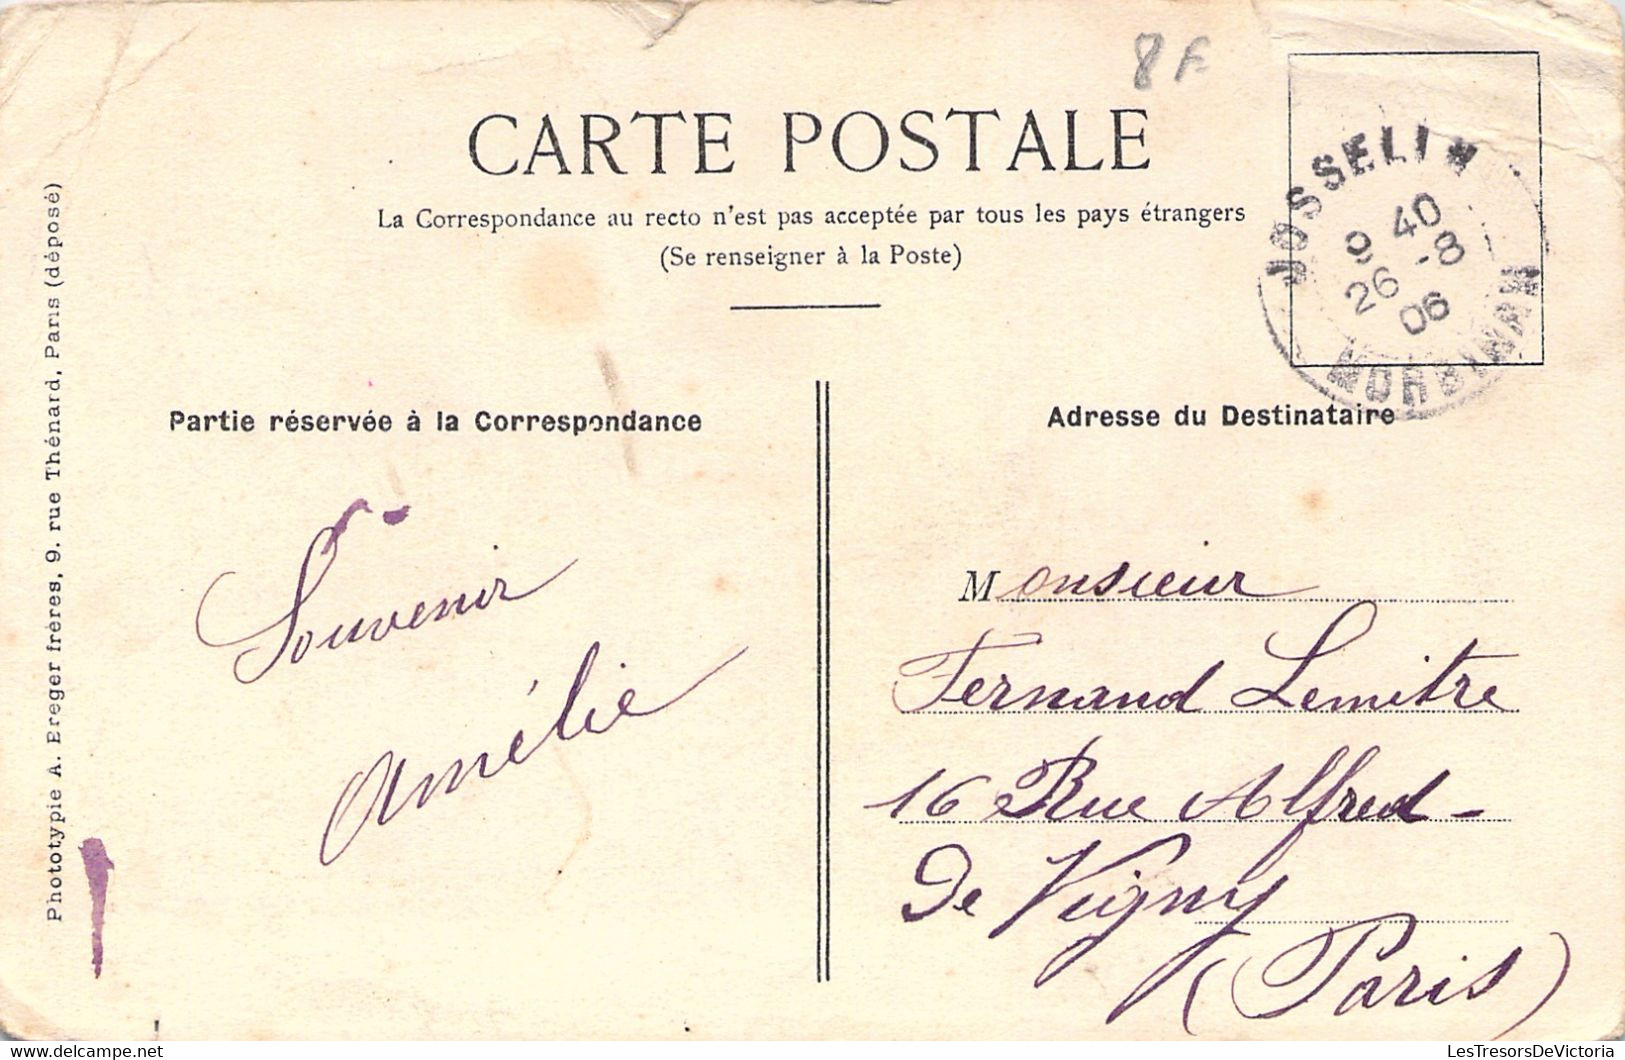 8 F
CARTE POSTALE
La Correspondance au recto n'est pas acceptée par tous les pays étrangers
(Se renseigner à la Poste)
JOSSELIN
9 40
26 -8
06
MORBIHAN
Phototypie A. Ereger frères, 9, rue Thénard, Paris (déposé)
Partie réservée à la Correspondance
Souvenir
Amélie
Adresse du Destinataire
Monsieur
Fernand Lemitre
16 Rue Alfred-
De Vigny
(Paris)
delcampe.net
LesTresorsDeVictoria